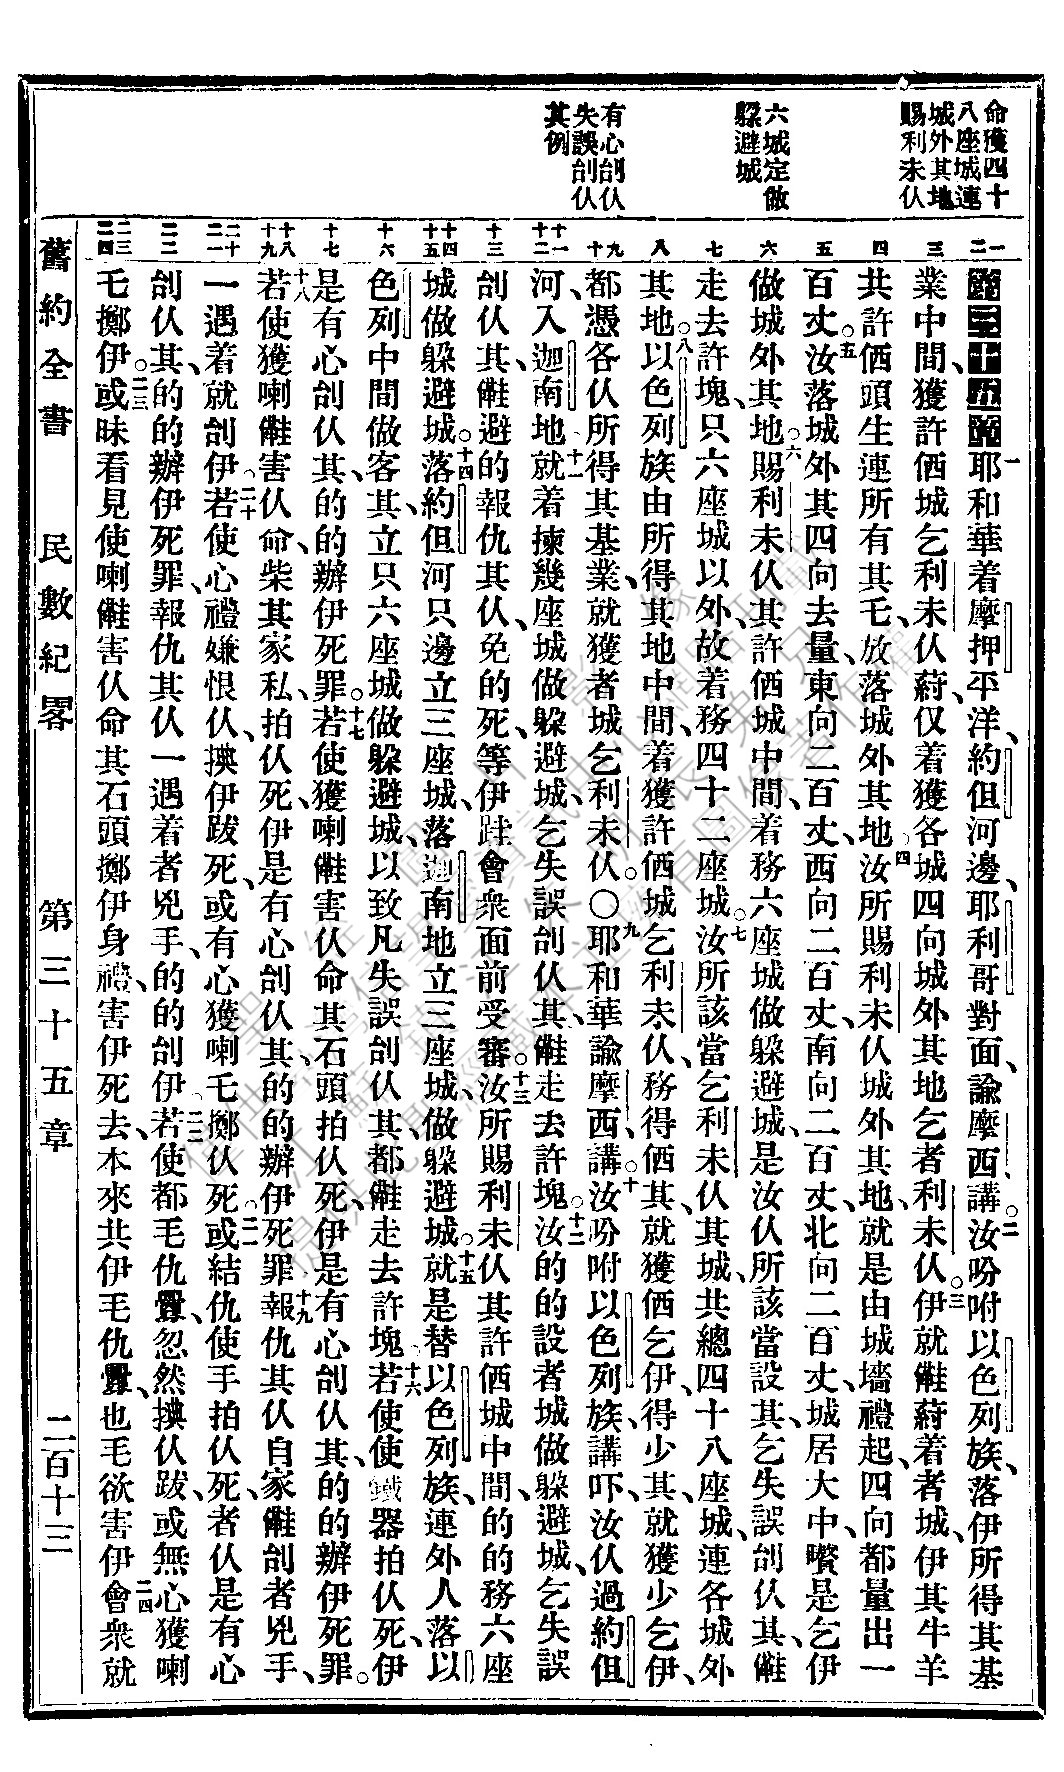 命獲四十
八座城連
城外其地
賜利未仈
六城定做
躱避城
有心刣仈
失誤刣仈
其例
一 二 三 四 五 六 七 八 九 十 十一 十二 十三 十四 十五 十六 十七 十八 十九 二十 二一 二二 二三 二四
第三十五章 一耶和華着摩押平洋、約但河邊、耶利哥對面、諭摩西講、二汝吩咐以色列族、落伊所得其基
業中間、獲許佰城乞利未仈蔚、仅着獲各城四向城外其地乞者利未仈。三伊就𠆧蔚着者城、伊其牛羊
共許佰頭生連所有其乇、放落城外其地、四汝所賜利未仈城外其地、就是由城墻禮起、四向都量出一
百丈。五汝落城外其四向去量、東向二百丈、西向二百丈、南向二百丈、北向二百丈、城居大中、囋是乞伊
做城外其地。六賜利未仈其許佰城中間、着務六座城做躱避城、是汝仈所該當設其、乞失誤刣仈其、𠆧
走去許塊、只六座城以外、故着務四十二座城。七汝所該當乞利未仈其城、共總四十八座城、連各城外
其地。八以色列族由所得其地中間、着獲許佰城乞利未仈、務得佰其、就獲佰乞伊、得少其、就獲少乞伊、
都憑各仈所得其基業、就獲者城乞利未仈。〇九耶和華諭摩西講、十汝吩咐以色列族、講吓、汝仈過約但
河、入迦南地、十一就着揀幾座城做躱避城、乞失誤刣仈其、𠆧走去許塊。十二汝的的設者城做躱避城、乞失誤
刣仈其、𠆧避的報仇其仈、免的死、等伊跓會衆面前受審。十三汝所賜利未仈其許佰城中間、的的務六座
城做躱避城。十四落約但河只邊立三座城、落迦南地立三座城、做躱避城。十五就是替以色列族、連外人落以
色列中間做客其、立只六座城做躱避城、以致凡失誤刣仈其、都𠆧走去許塊、十六若使使鐵器拍仈死、伊
是有心刣仈其、的的辦伊死罪。十七若使獲喇𠆧害仈命其石頭拍仈死、伊是有心刣仈其、的的辦伊死罪。
十八若使獲喇𠆧害仈命、柴其家私、拍仈死、伊是有心刣仈其、的的辦伊死罪、十九報仇其仈自家𠆧刣者兇手、
一遇着就刣伊。二十若使心禮嫌恨仈、㨂伊跋死、或有心獲喇乇擲仈死。二一或結仇使手拍仈死、者仈是有心
刣仈其、的的辦伊死罪、報仇其仈一遇着者兇手、的的刣伊。二二若使都毛仇釁、忽然㨂仈跋、或無心獲喇
乇擲伊。二三或昧看見使喇𠆧害仈命其石頭擲伊身禮、害伊死去、本來共伊毛仇釁也毛欲害伊、二四會衆就
舊約全書　民數紀畧　第三十五章　二百十三